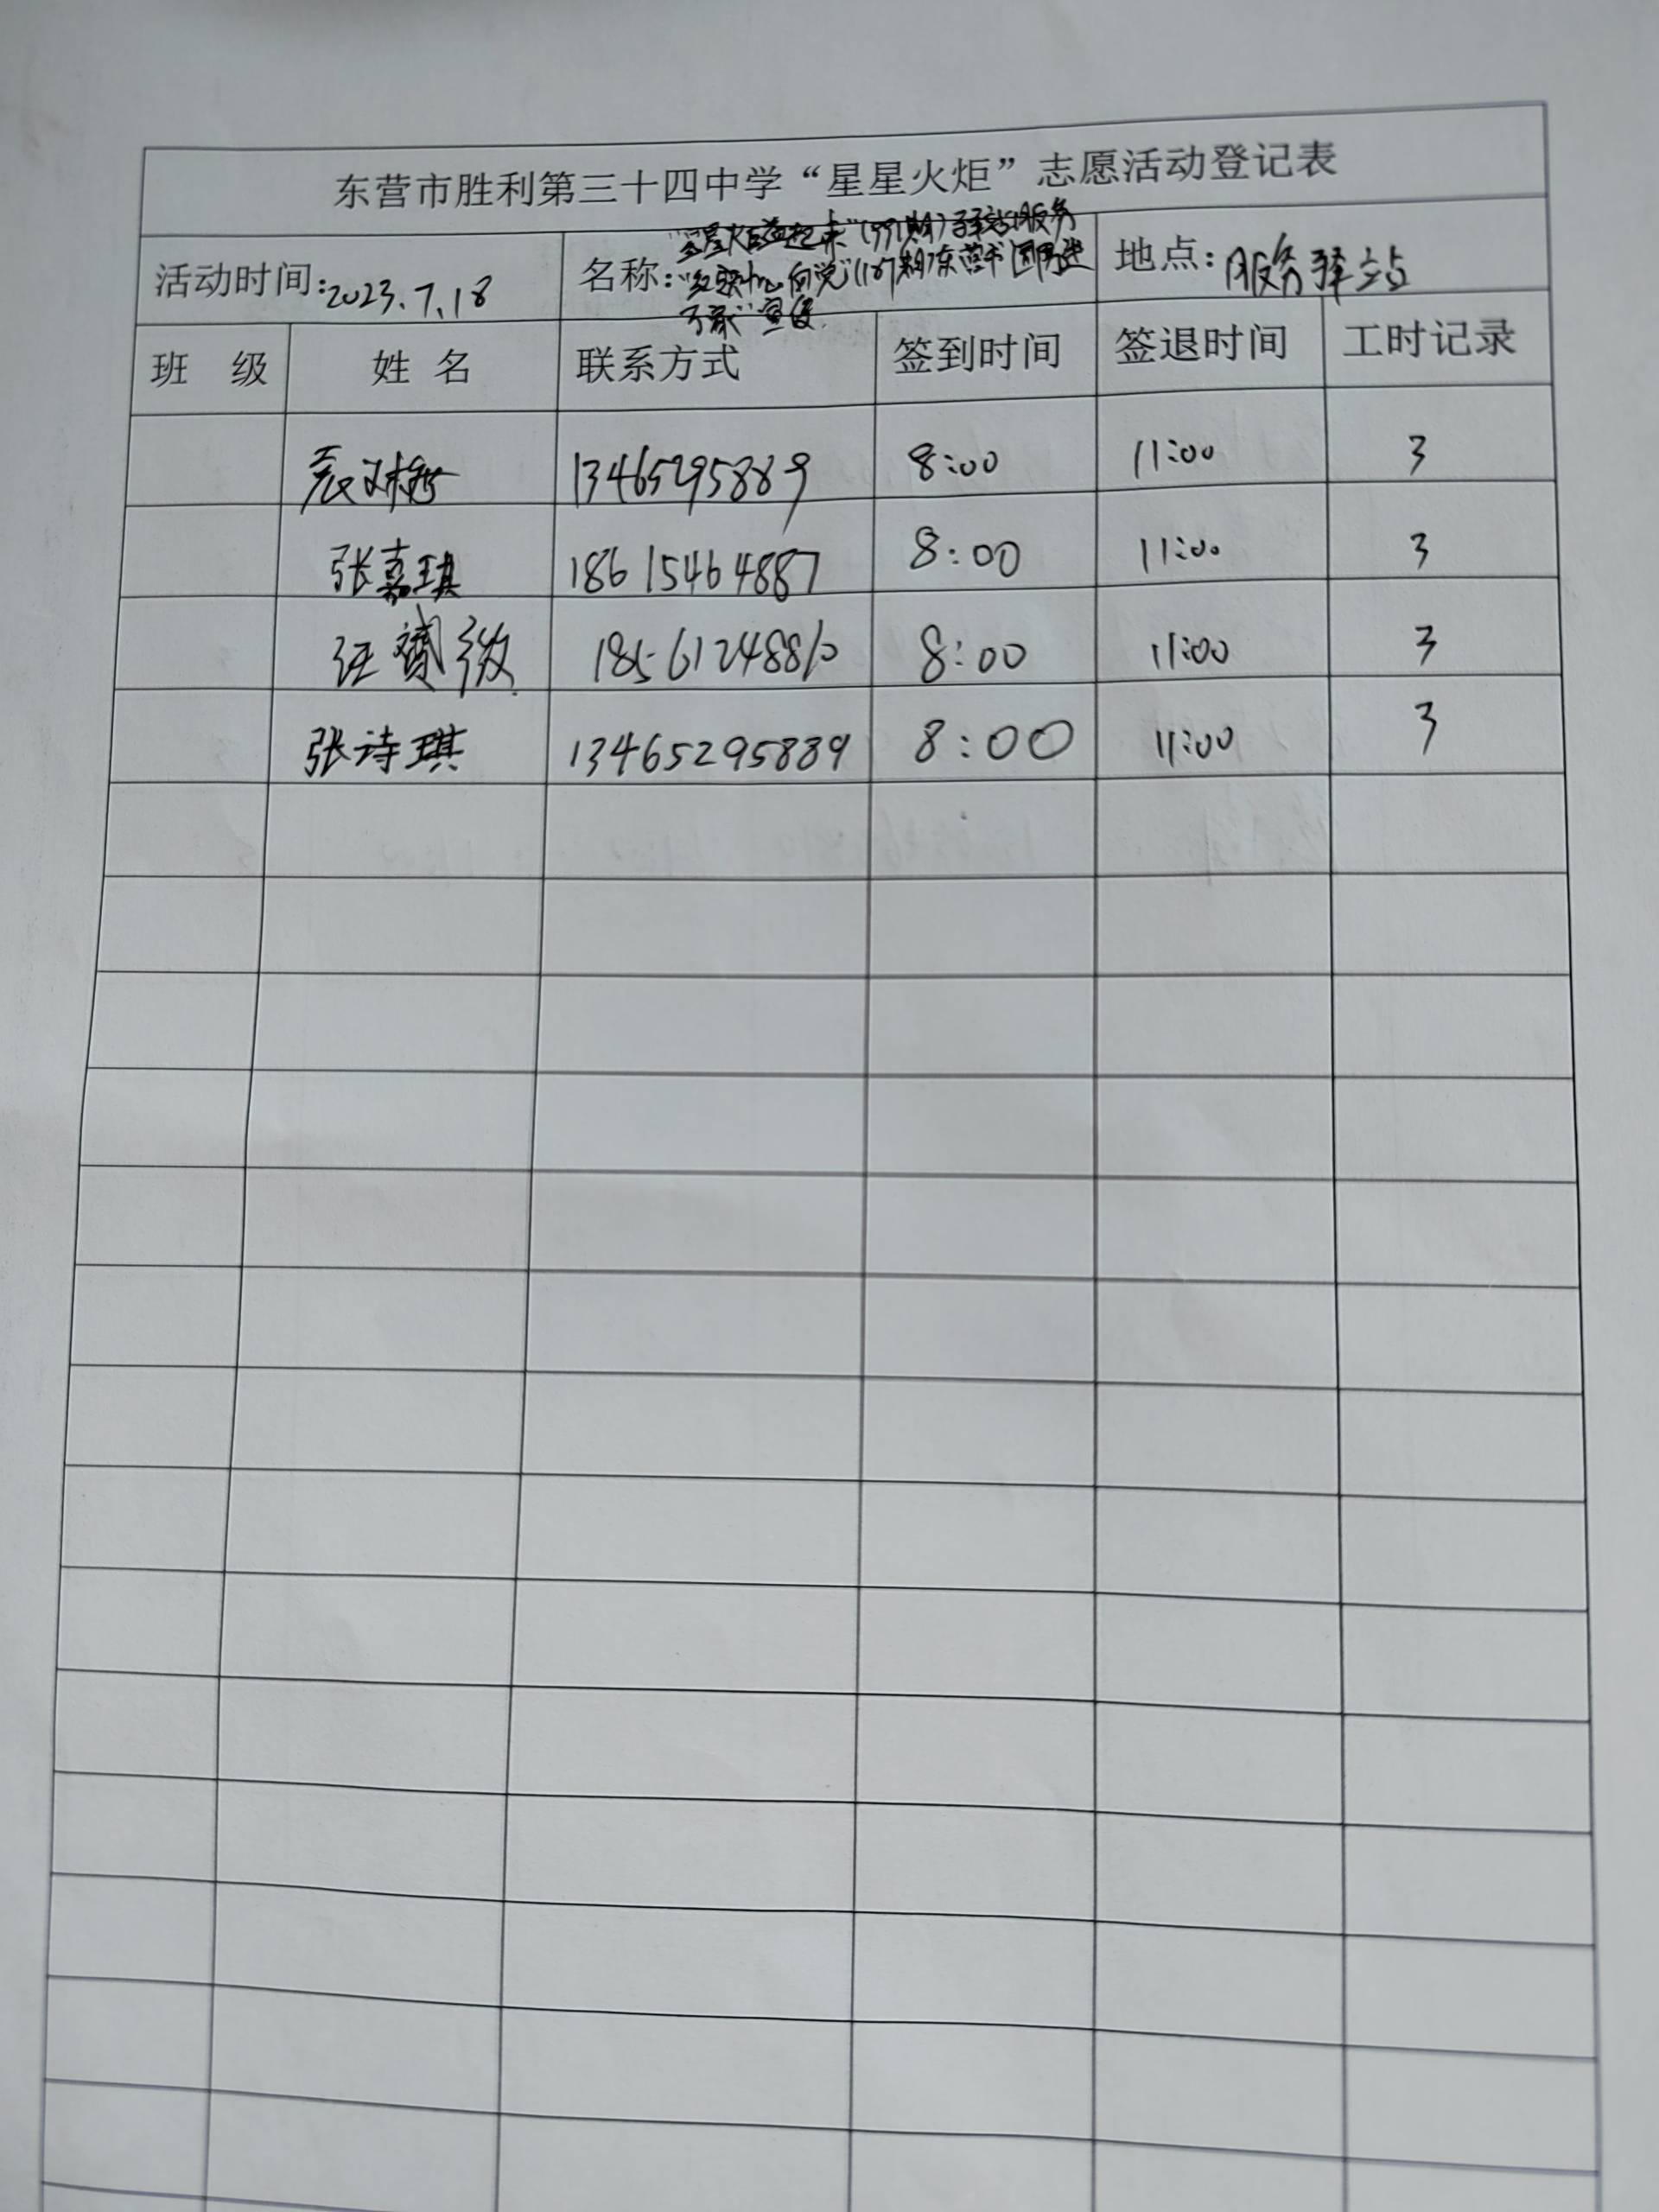 东营市胜利第三十四中学“星星火炬”志愿活动登记表
活动时间:2023.7.18 名称: (991期) 驿站服务 (187期) 东营书 宣传 地点:服务驿站
班 级 姓 名 联系方式 签到时间 签退时间 工时记录
13465295889 8:00 11:00 3
张嘉琪 18615464887 8:00 11:00 3
汪 8:00 11:00 3
张诗琪 13465295889 8:00 11:00 3